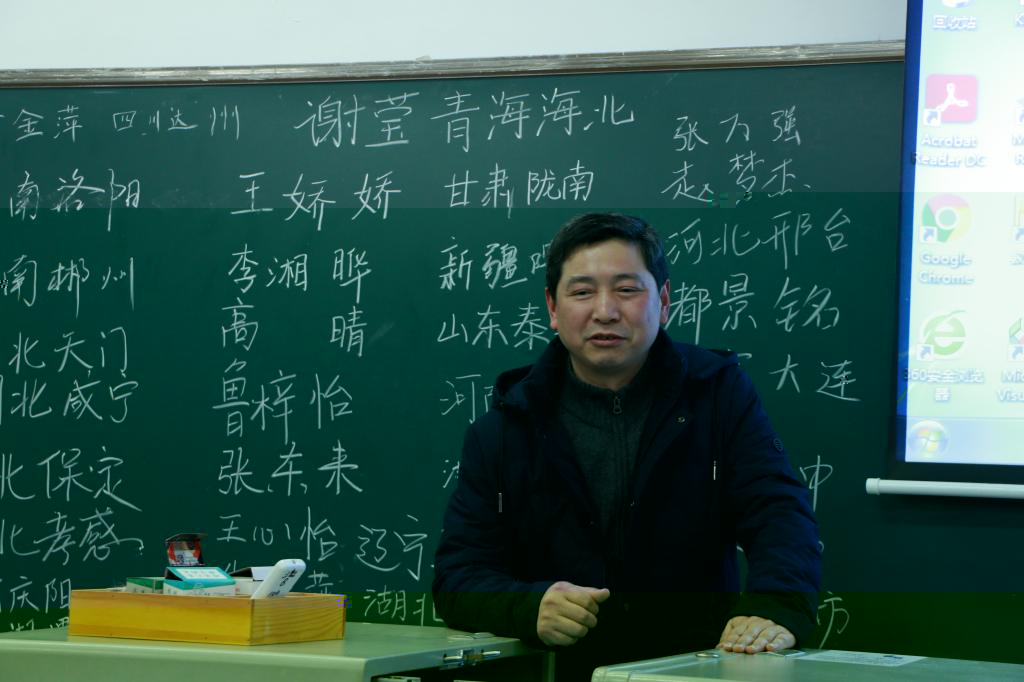 金萍 四川达州 谢莹 青海海北 张为强
南洛阳 王娇娇 甘肃陇南 赵梦杰
南郴州 李湘晔 新疆 河北邢台
北天门 高晴 山东泰 都景铭
北咸宁 鲁梓怡 河 大连
北保定 张东来 中
北孝感 王心怡 辽宁
庆阳 湖北 坊
回收站
Acrobat
Reader DC
Google
Chrome
360安全浏览
器